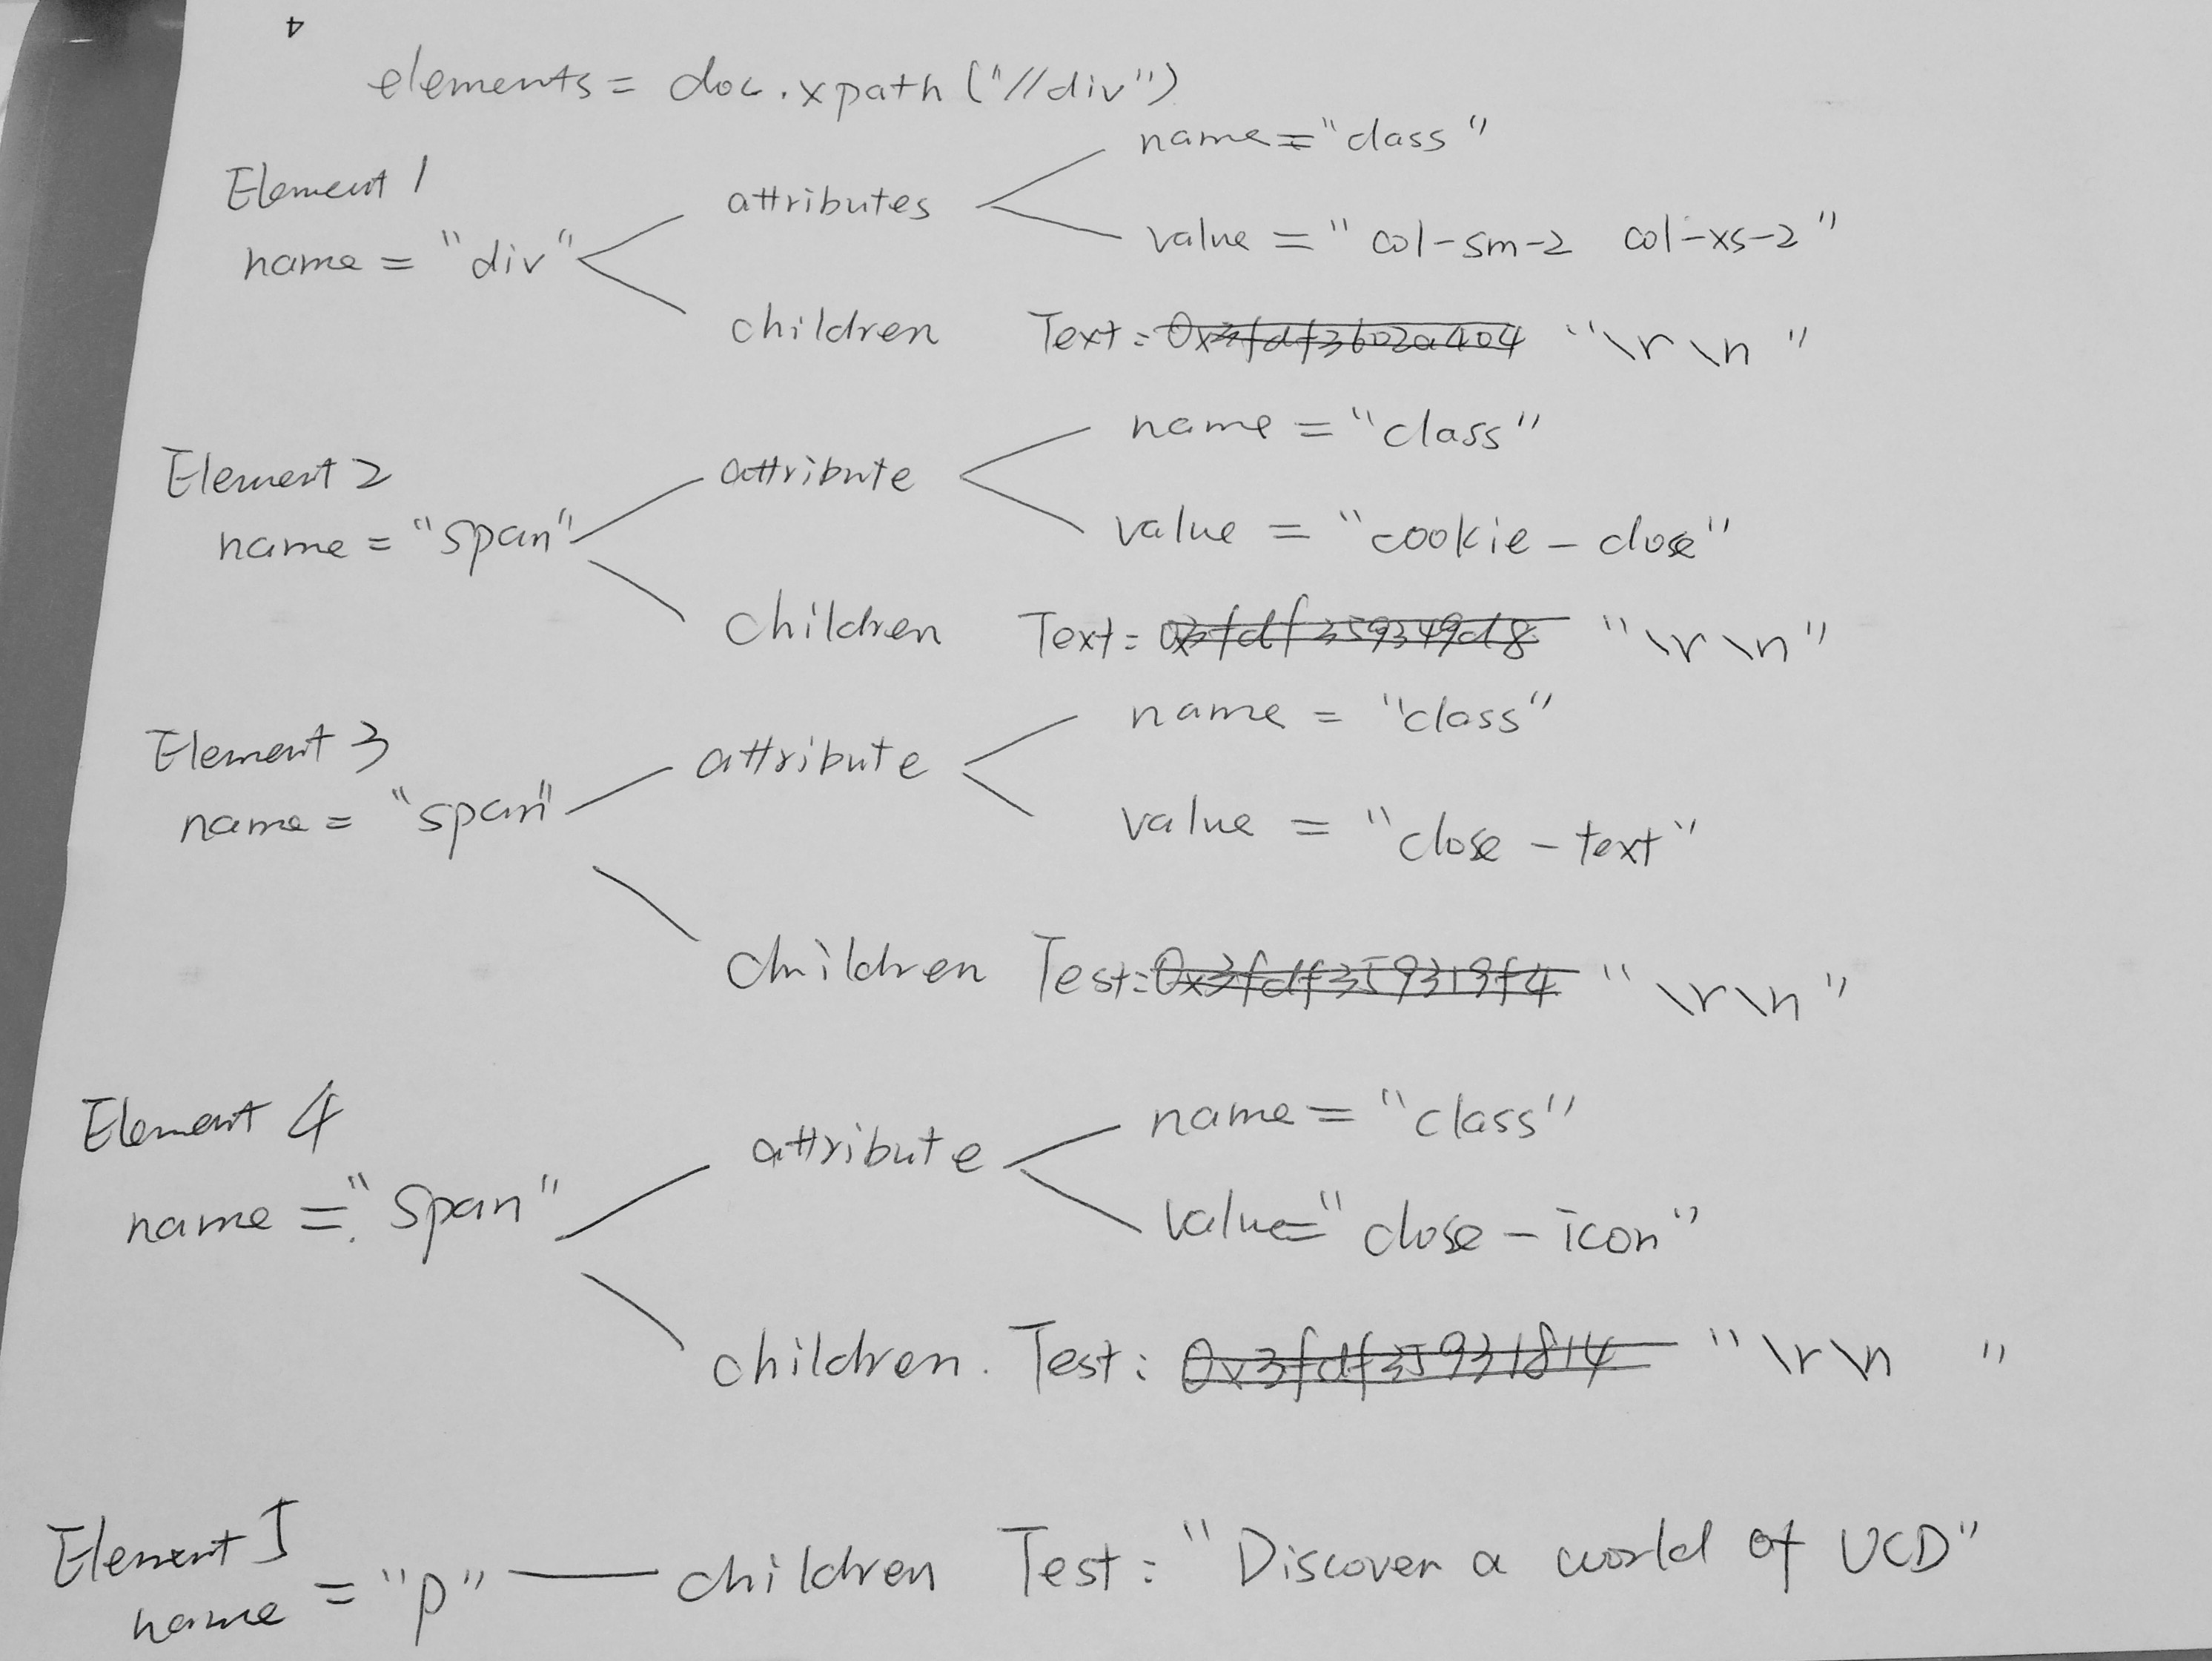 4
elements = doc.xpath("//div")
name = "class"
Element 1
attributes
name = "div"
value = "col-sm-2 col-xs-2"
children Text: 0x3fdf3602a404 "\r\n "
name = "class"
Element 2
attribute
name = "span"
value = "cookie-close"
children Text: 0x3fdf359349d8 "\r\n"
name = "class"
Element 3
attribute
name = "span"
value = "close-text"
children Test: 0x3fdf359319f4 "\r\n"
Element 4
name = "class"
attribute
name = "span"
value = "close-icon"
children. Test: 0x3fdf35931814 "\r\n "
Element 5
name = "p" — children Test: "Discover a world of UCD"